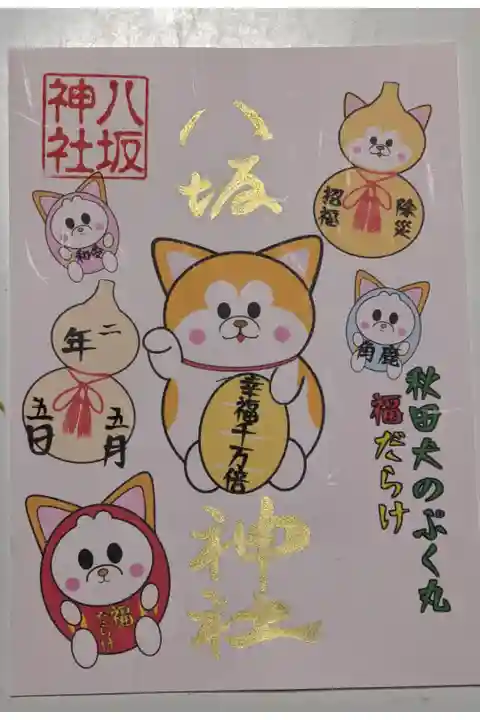 八坂
神社
八坂
神社
除災
招福
和登
角鹿
二年
五月
五日
幸福千万倍
秋田犬のぷく丸
福だらけ
福
だらけ